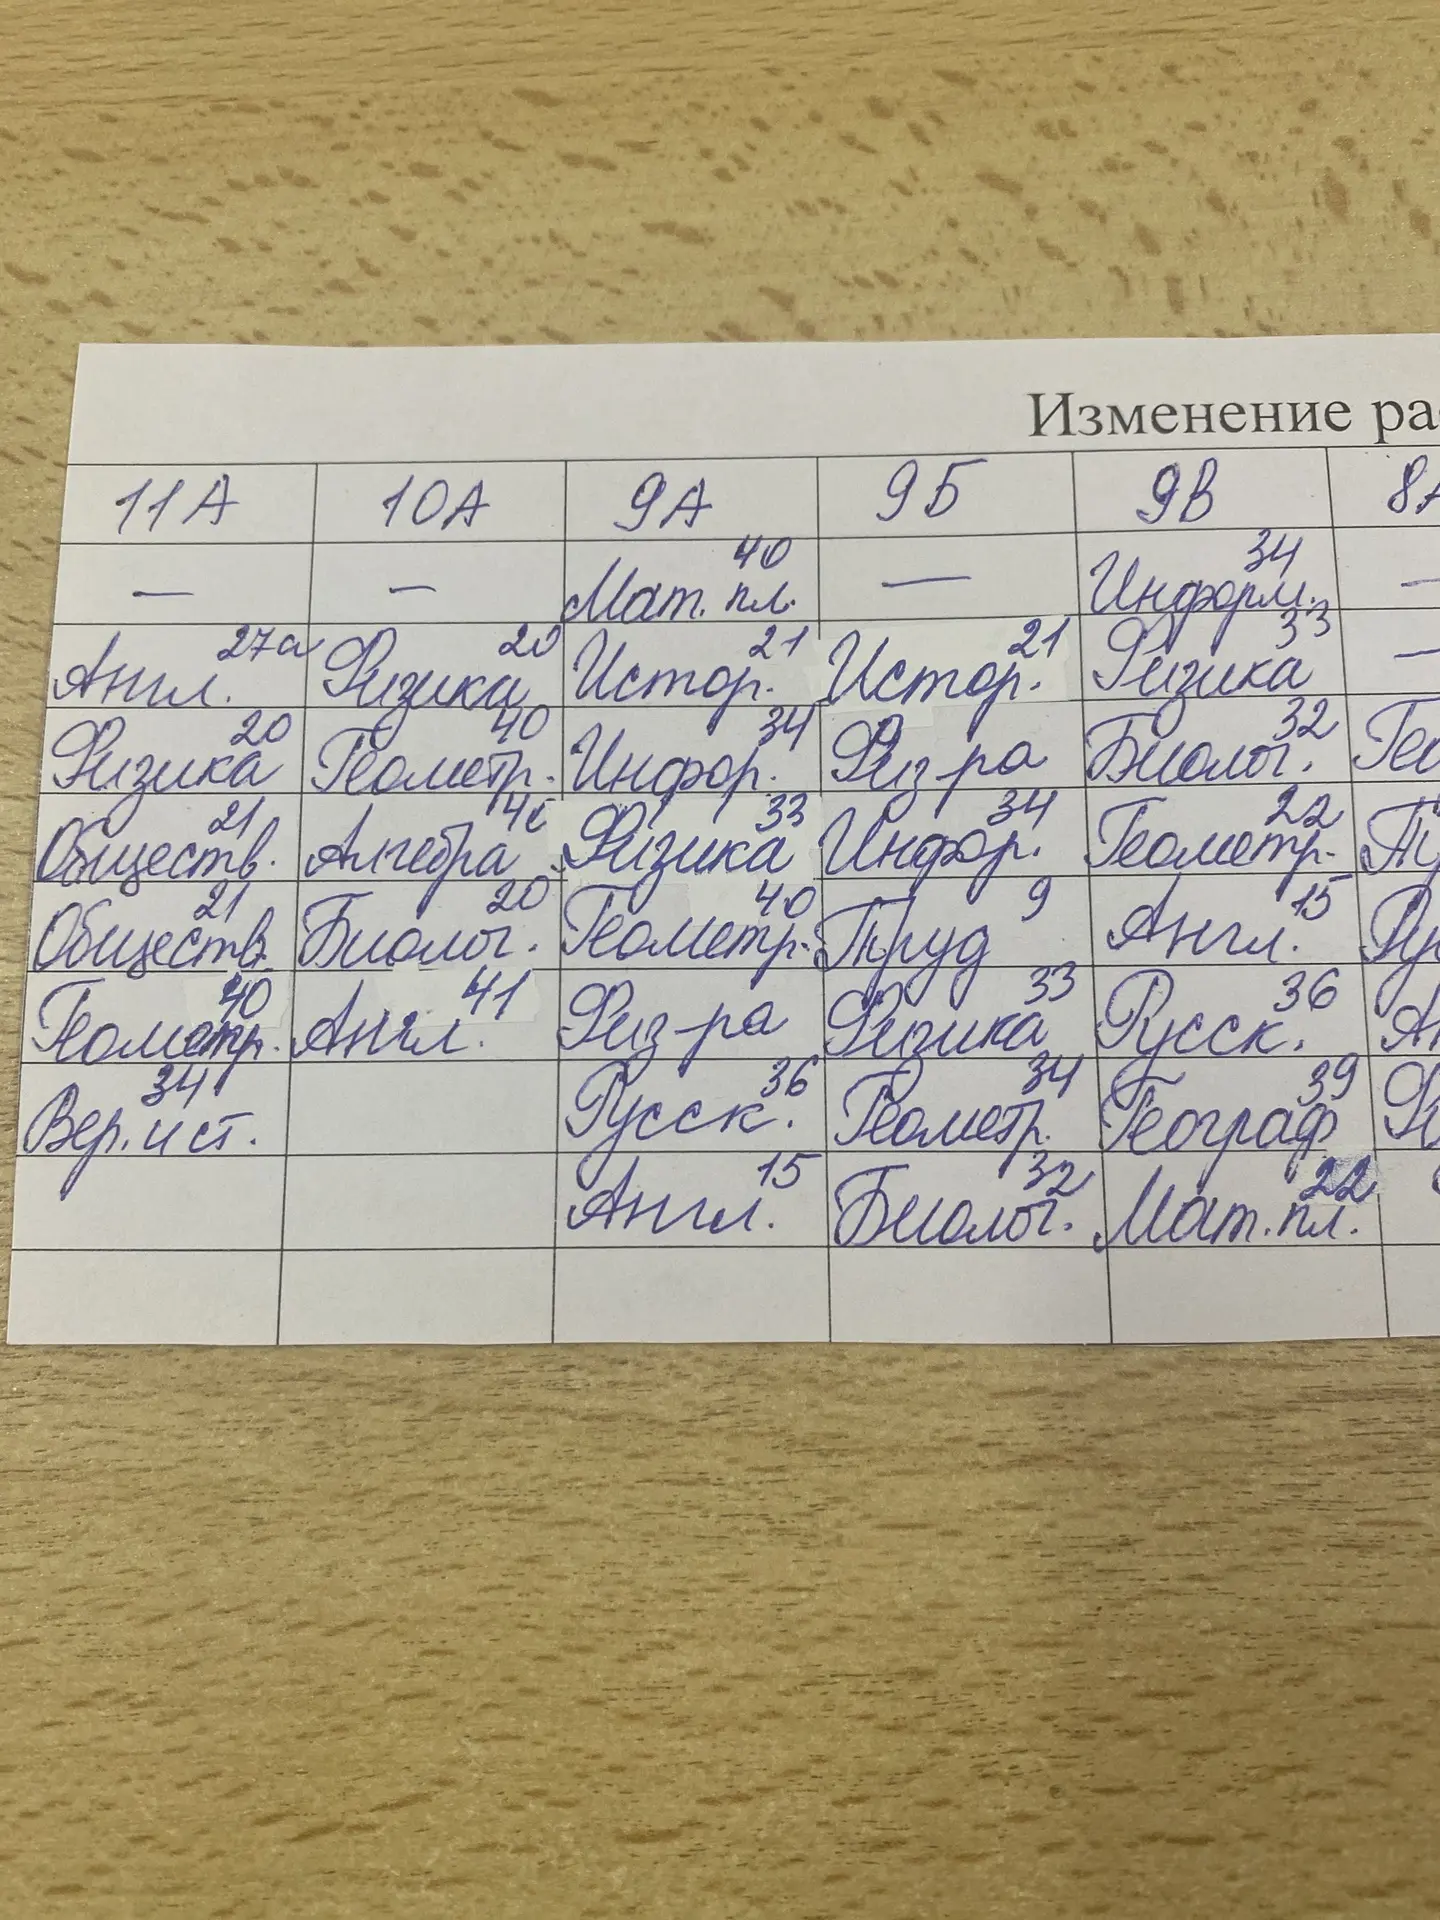 Изменение рас
11А 10А 9А 9Б 9В 8А
— — Мат. пл. 40 — Информ. 34 —
Англ. 27а Физика 20 Истор. 21 Истор. 21 Физика 33 —
Физика 20 Геометр. 40 Инфор. 34 Физ-ра Биолог. 32 Гео
Обществ. 21 Алгебра Физика 33 Инфор. 34 Геометр. 22 Тр
Обществ. 21 Биолог. 20 Геометр. 40 Труд 9 Англ. 15 Ру
Геометр. 40 Англ. 41 Физ-ра Физика 33 Русск. 36 Ан
Вер. и ст. 34 Русск. 36 Геометр. 34 Географ 39
Англ. 15 Биолог. 32 Мат. пл. 22